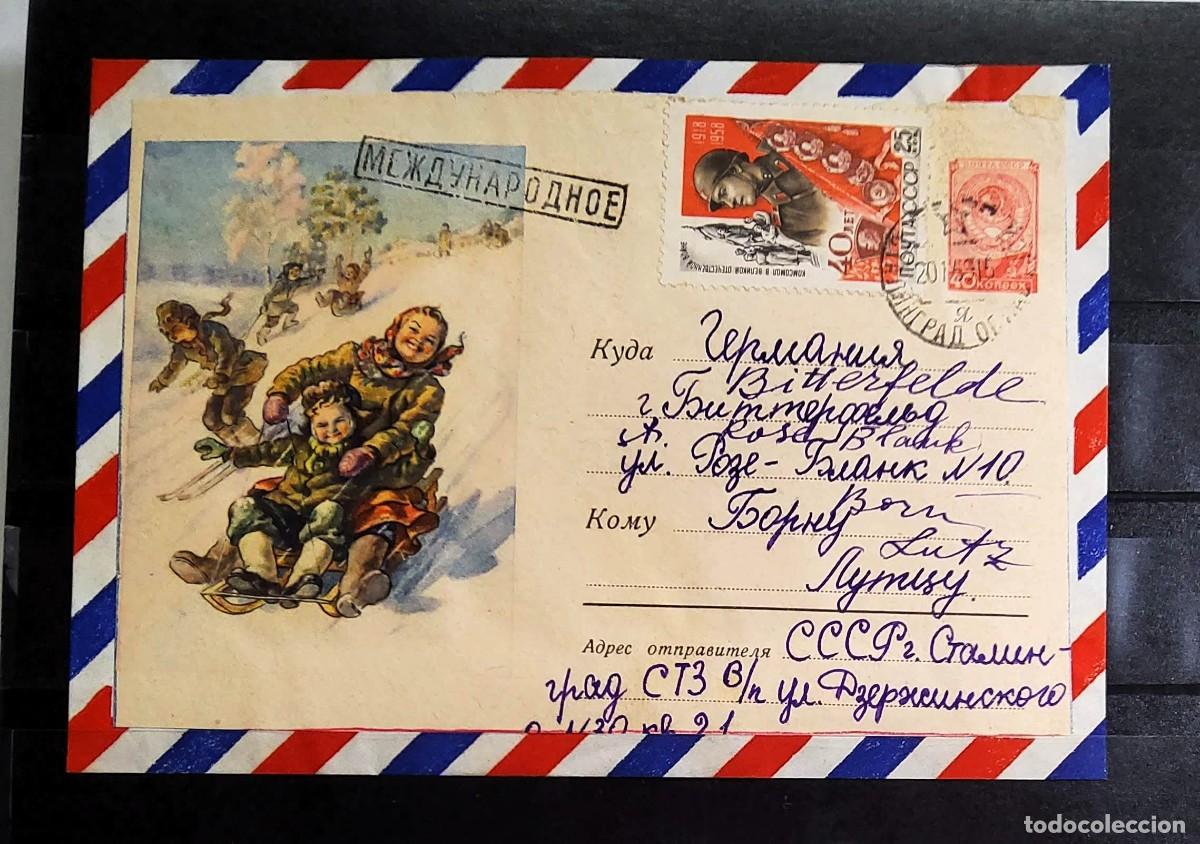 МЕЖДУНАРОДНОЕ
1918 1958
40 ЛЕТ
КОМСОМОЛ В ВЕЛИКОЙ ОТЕЧЕСТВЕННОЙ
ПОЧТА СССР
ПОЧТА СССР
40 КОПЕЕК
Куда Германия
Bitterfelde
г. Биттерфельд
Rosa Blank
ул. Розе-Бланк N10.
Кому Борну Born
Lutz
Лутцу.
Адрес отправителя СССР г. Сталин-
град СТЗ В/п ул. Дзержинского
N30 кв. 21
todocoleccion